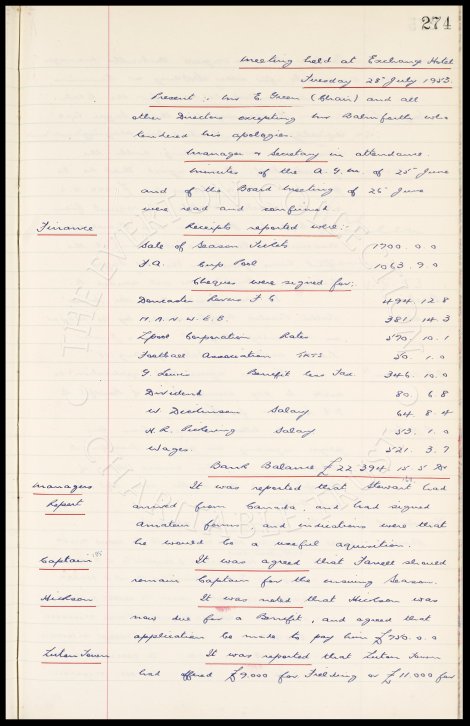 274
Meeting held at Exchange Hotel
Tuesday 28th July 1953.
Present: Mr E. Green (Chair) and all
other Directors excepting Mr Balmforth who
tendered his apologies.
Manager & Secretary in attendance.
Minutes of the A.G.M. of 25th June
and of the Board Meeting of 25th June
were read and confirmed.
Finance Receipts reported were:
Sale of Season Tickets 1700. 0. 0
F.A. Cup Pool 1063. 9. 0
Cheques were signed for:
Doncaster Rovers F C 494. 12. 8
M.A.N.W.E.B. 381. 14. 3
Lpool Corporation Rates 570. 10. 1
Football Association TKTS 50. 1. 0
G. Lewis Benefit less Tax 346. 10. 0
Dividend 80. 6. 8
W. Dickinson Salary 64. 8. 4
H.R. Pickering Salary 53. 1. 0
Wages. 521. 3. 7
Bank Balance £22,394. 15. 5 Dr
Managers Report It was reported that Stewart had
arrived from Canada, and had signed
Amateur forms and indications were that
he would be a useful acquisition.
Captain It was agreed that Farrell should
remain Captain for the ensuing Season.
Hickson It was noted that Hickson was
now due for a Benefit, and agreed that
application be made to pay him £750. 0. 0
Luton Town It was reported that Luton Town
had offered £9,000 for Fielding or £11,000 for
THE EVERTON COLLECTION
CHARITABLE TRUST